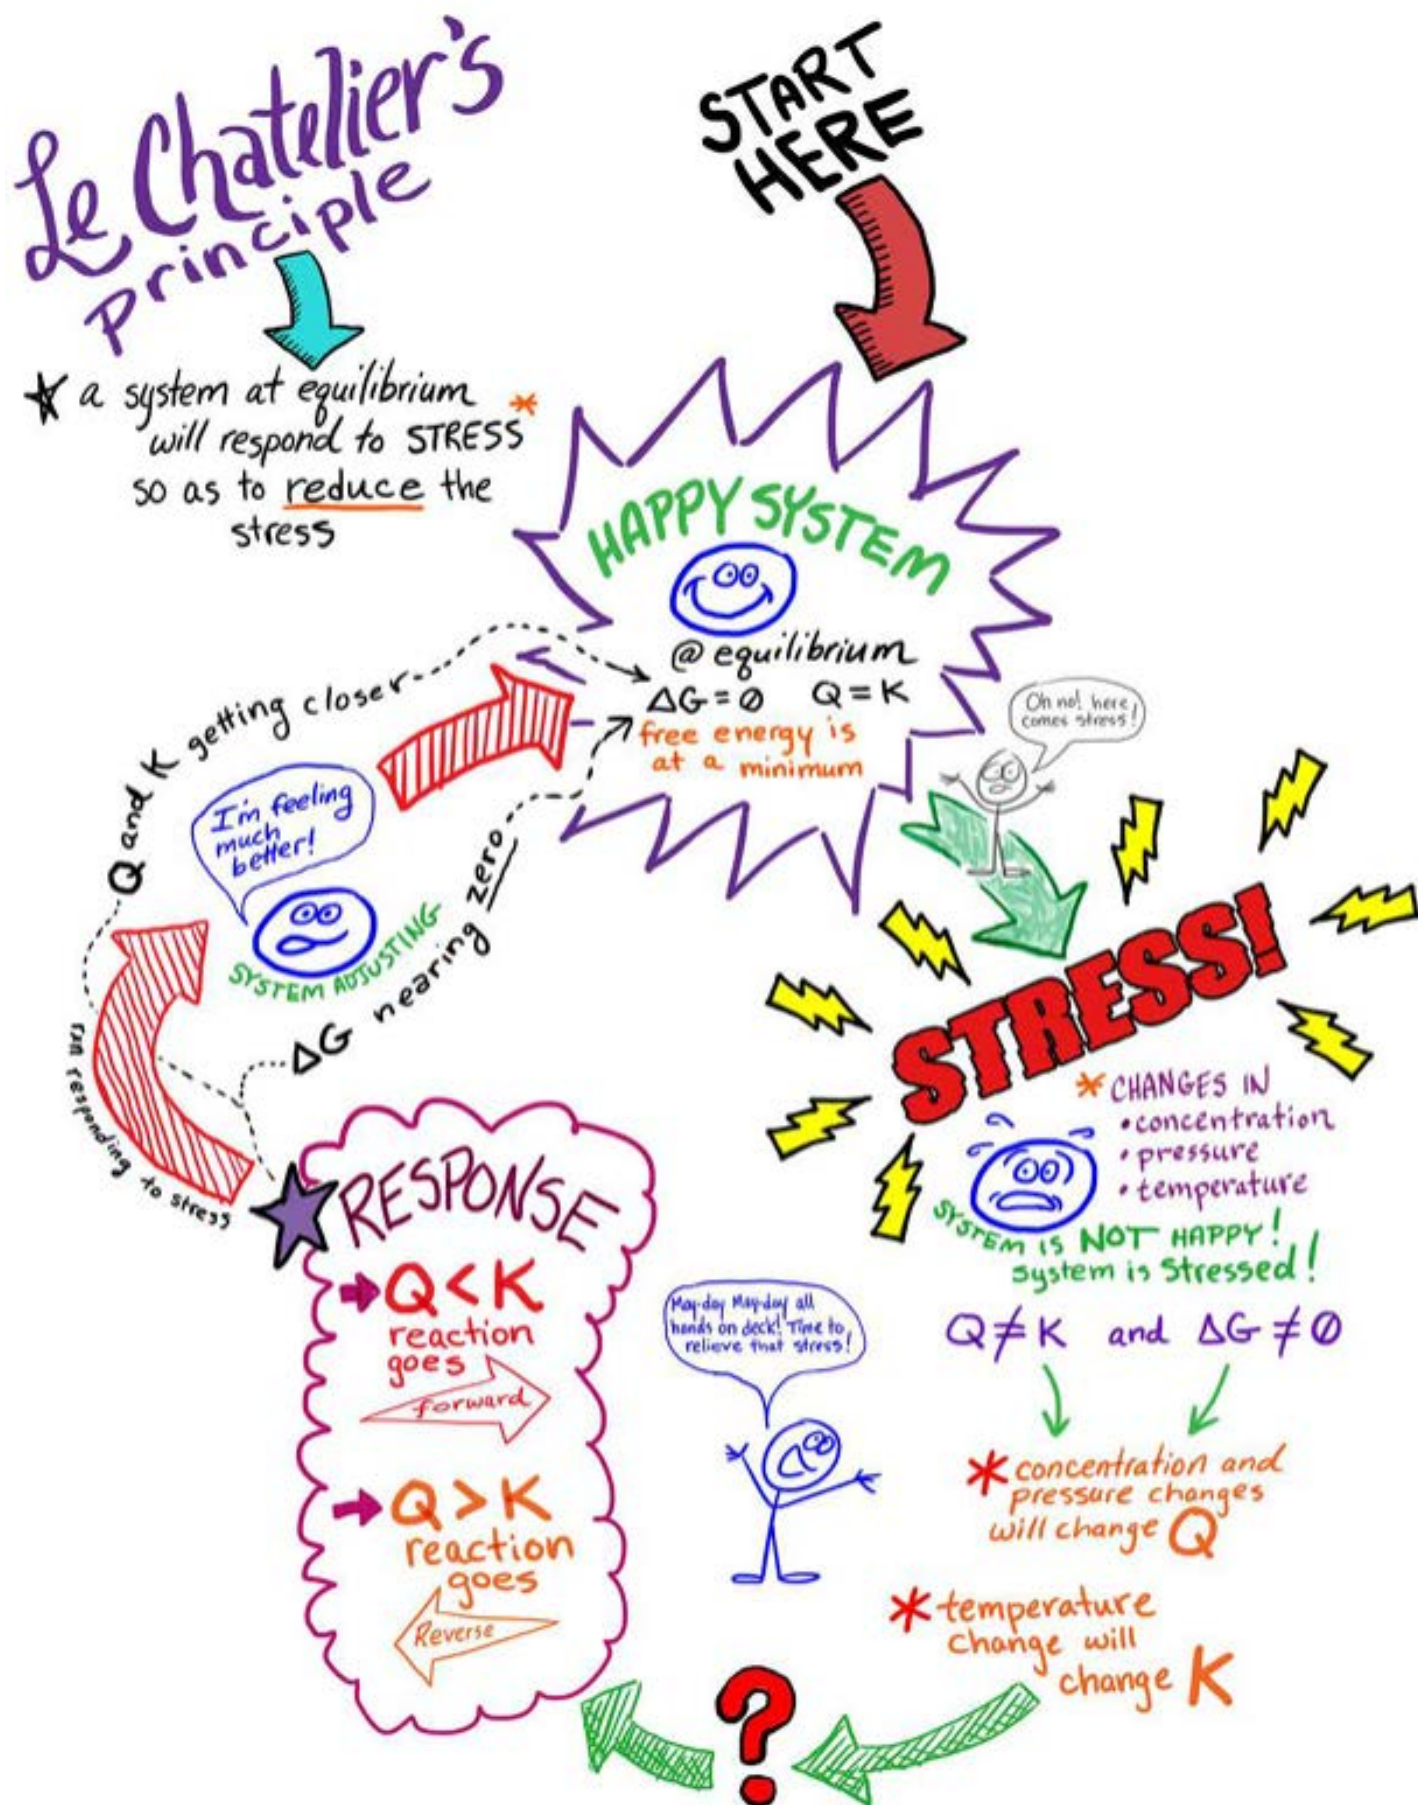 Le Chatelier's
principle
a system at equilibrium
will respond to STRESS*
so as to reduce the
stress
START
HERE
HAPPY SYSTEM
@ equilibrium
ΔG = 0 Q = K
free energy is
at a minimum
Oh no! here
comes stress!
STRESS!
* CHANGES IN
• concentration
• pressure
• temperature
SYSTEM IS NOT HAPPY!
system is Stressed!
Q ≠ K and ΔG ≠ 0
* concentration and
pressure changes
will change Q
* temperature
change will
change K
?
May-day May-day all
hands on deck! Time to
relieve that stress!
RESPONSE
Q < K
reaction
goes
forward
Q > K
reaction
goes
Reverse
rxn responding to stress
Q and K getting closer
I'm feeling
much
better!
SYSTEM ADJUSTING
ΔG nearing zero